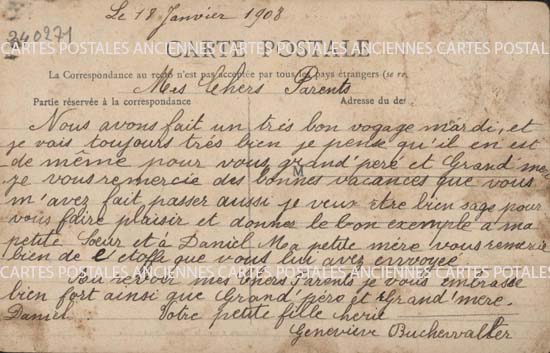 Le 18 Janvier 1908
340271
CARTE POSTALE
CARTES POSTALES ANCIENNES CARTES POSTALES ANCIENNES CARTES POSTALES
La Correspondance au recto n'est pas acceptée par tous les pays étrangers (se re
Mes Chers Parents
Partie réservée à la correspondance
Adresse du des
Nous avons fait un très bon voyage mardi, et
je vais toujours très bien je pense qu'il en est
de même pour vous grand'père et Grand mère
je vous remercie des bonnes vacances que vous
m'avez fait passer aussi je veux être bien sage pour
vous faire plaisir et donner le bon exemple à ma
petite Sœur et à Daniel Ma petite mère vous remercie
bien de l'étoffe que vous lui avez envoyée
CARTES POSTALES ANCIENNES CARTES POSTALES ANCIENNES CARTES POSTALES
Au revoir mes chers Parents je vous embrasse
bien fort ainsi que Grand père et Grand'mère
Daniel Votre petite fille chérie
Geneviève Bucherwalter